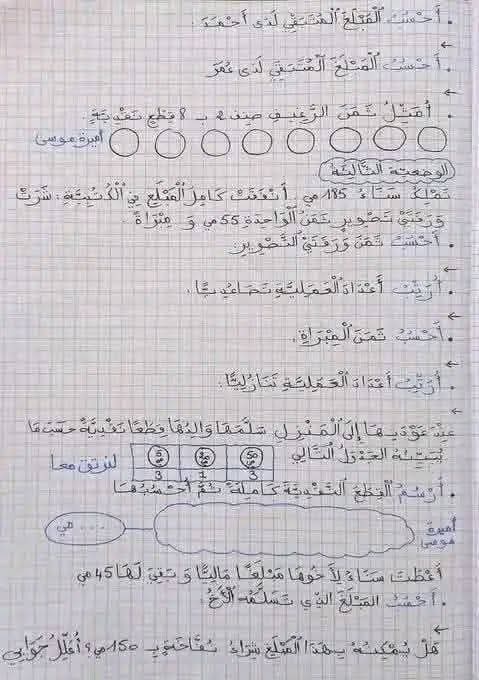 . أَحْسُبُ الْمَبْلَغَ الْمُتَبَقِّي لَدَى أَحْمَدَ:
←
. أَحْسُبُ الْمَبْلَغَ الْمُتَبَقِّيَ لَدَى عُمَرَ
←
. أُمَثِّلُ ثَمَنَ الرَّغِيفِ صِنْفِ 2 بِـ 8 قِطَعٍ نَقْدِيَّةٍ.
أميرة موسى
الوضعية الثالثة
تَمْلِكُ سَنَاءُ 185 مي. أَنْفَقَتْ كَامِلَ الْمَبْلَغِ فِي الْمَكْتَبِيَّةِ: شَرَتْ
وَرَقَتَيْ تَصْوِيرٍ ثَمَنُ الْوَاحِدَةِ 55 مي وَ مِبْرَاةً.
. أَحْسُبُ ثَمَنَ وَرَقَتَيْ التَّصْوِيرِ.
←
. أُرَتِّبُ أَعْدَادَ الْعَمَلِيَّةِ تَصَاعُدِيًّا.
←
. أَحْسُبُ ثَمَنَ الْمِبْرَاةِ.
←
. أُرَتِّبُ أَعْدَادَ الْعَمَلِيَّةِ تَنَازُلِيًّا:
←
عِنْدَ عَوْدَتِهَا إِلَى الْمَنْزِلِ سَلَّمَهَا وَالِدُهَا قِطَعًا نَقْدِيَّةً حَسَبَ مَا
يُبَيِّنُهُ الجَدْوَلُ التَّالِي
5 20 50
3 1 3
لنرتق معا
. أَرْسُمُ الْقِطَعَ النَّقْدِيَّةَ كَامِلَةً ثُمَّ أَحْسُبُهَا
... مي
أميرة موسى
أَعْطَتْ سَنَاءُ لِأَخُوهَا مَبْلَغًا مَالِيًّا وَ بَقِيَ لَهَا 45 مي
. أَحْسُبُ المَبْلَغَ الذِي تَسَلَّمَهُ الْأَخُ.
هَلْ يُمْكِنُهُ بِهَذَا الْمَبْلَغِ شِرَاءُ تُفَّاحَةٍ بِـ 150 مي؟ أُعَلِّلُ جَوَابِي